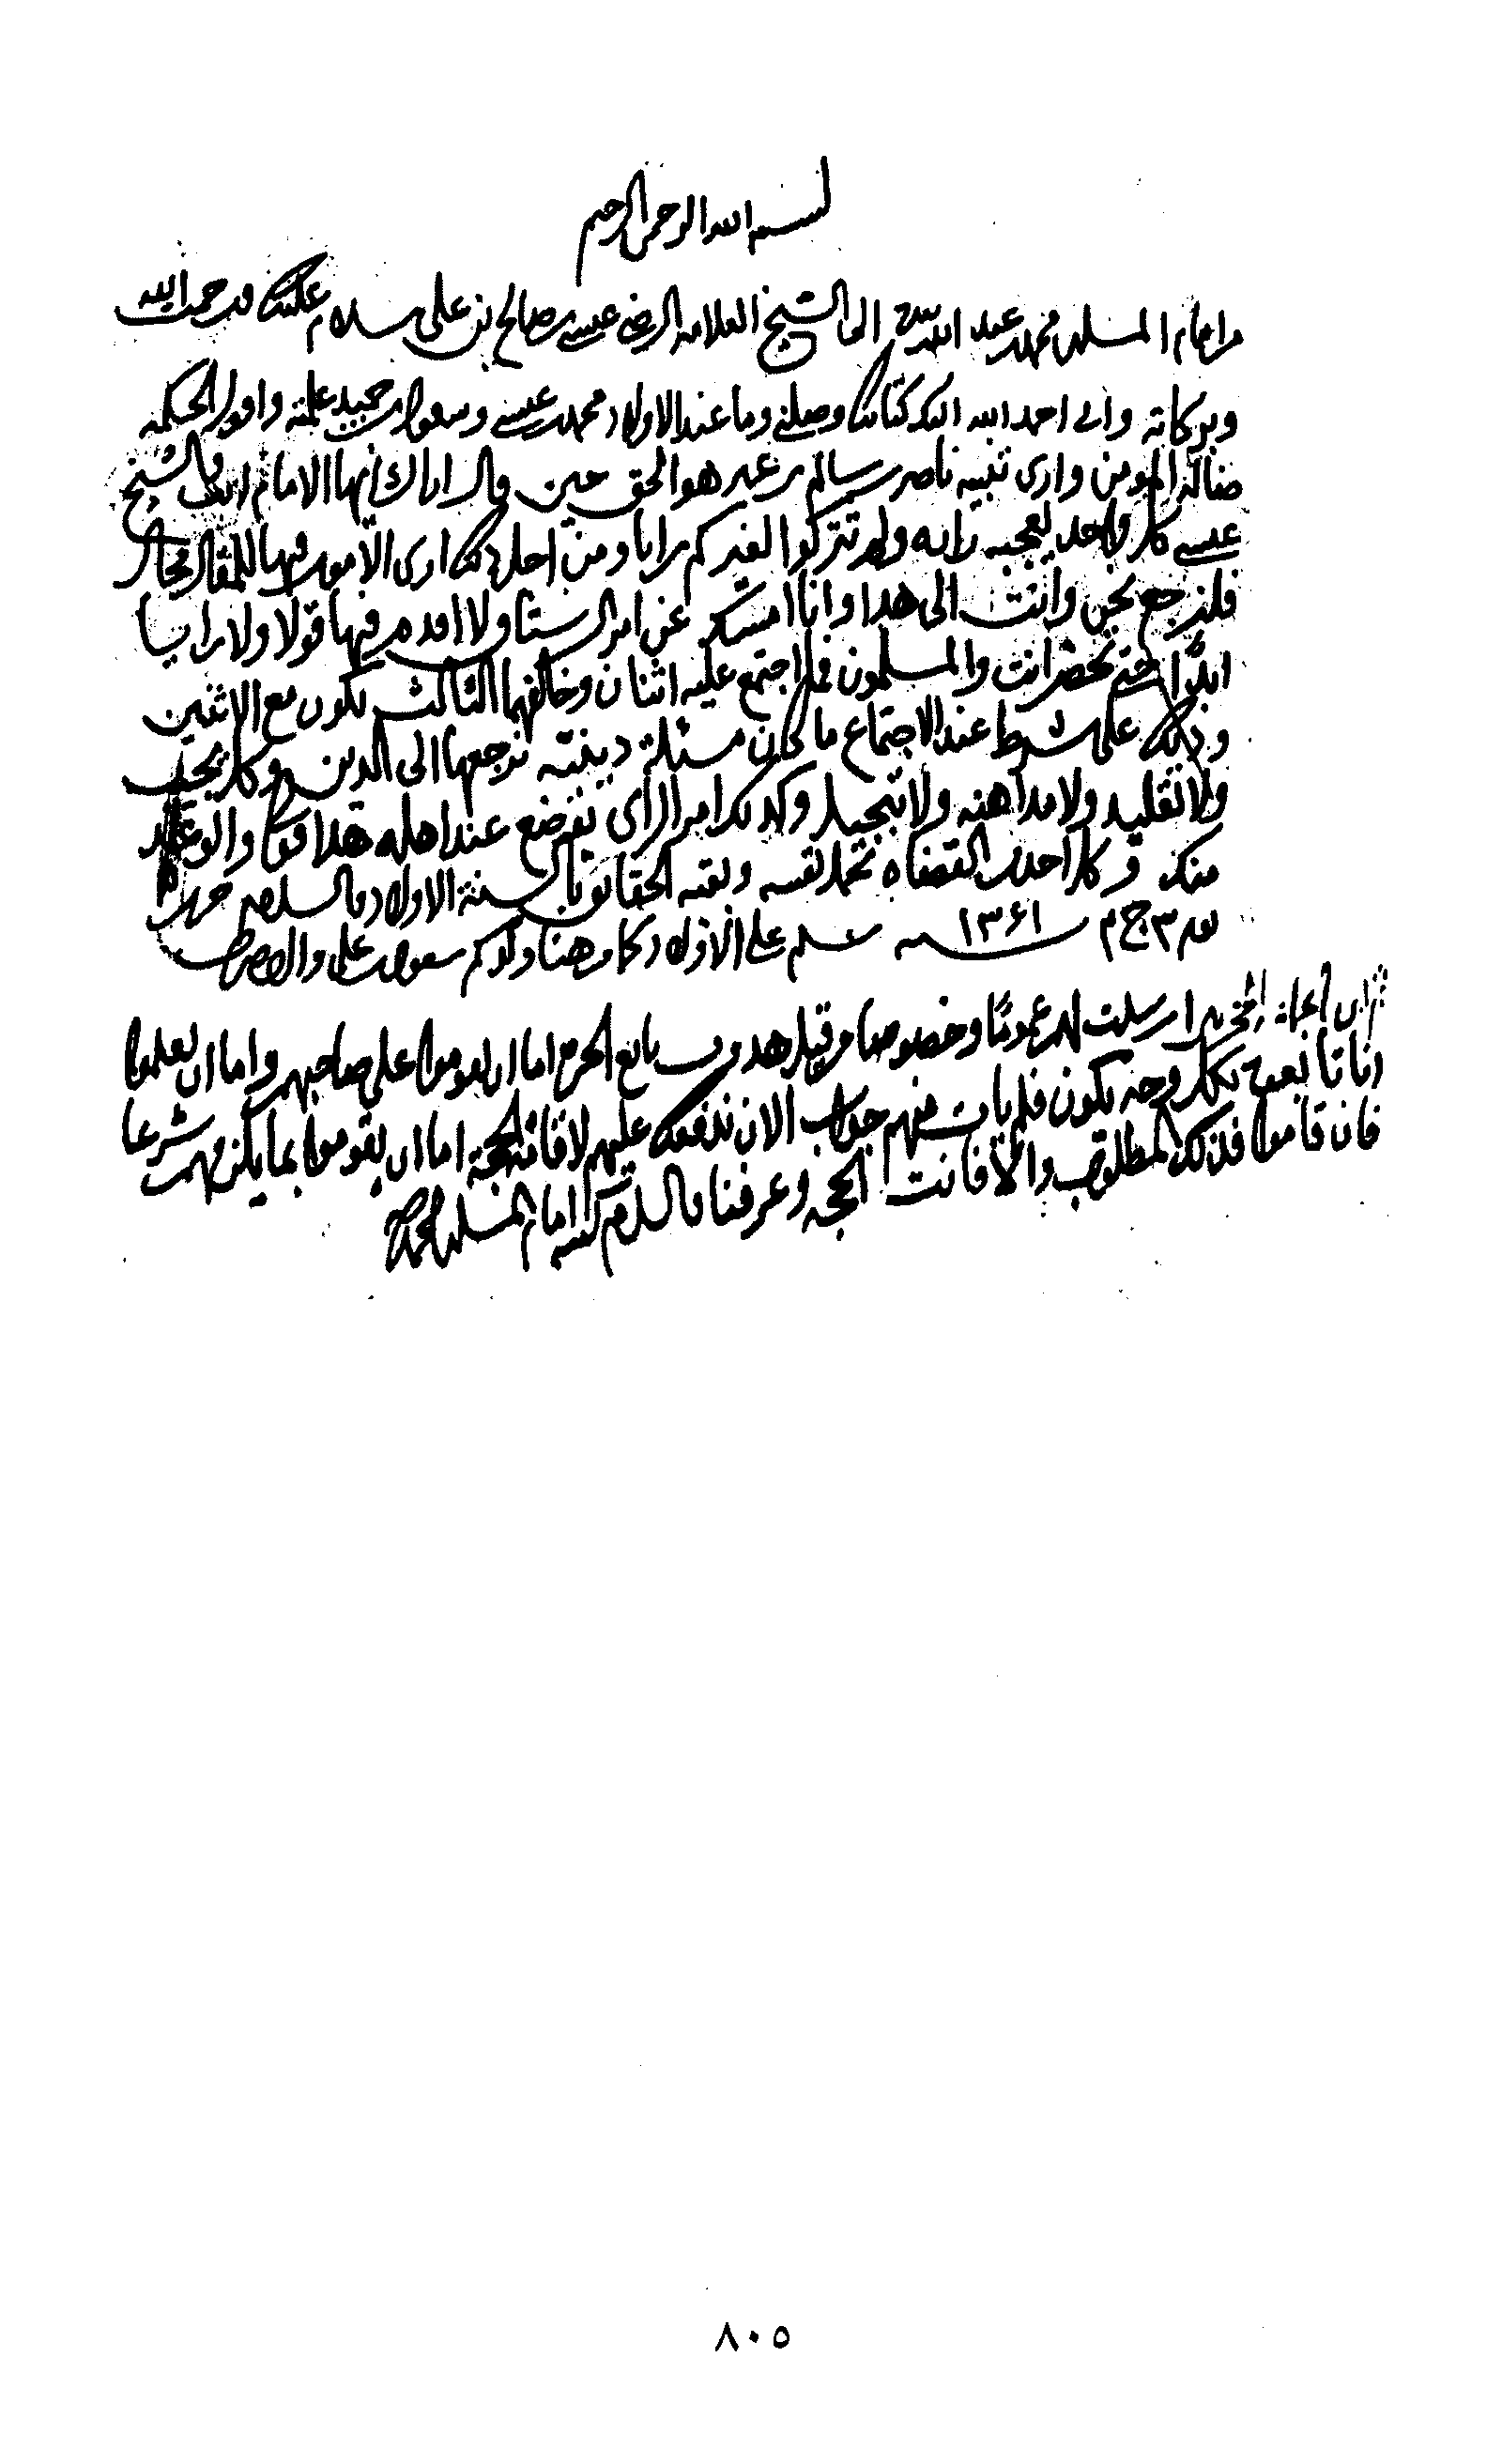 بسم الله الرحمن الرحيم
من امام المسلمين محمد بن عبد الله الى الشيخ العلامة الرضي عيسى بن صالح بن علي سلام عليك ورحمة الله
وبركاته واني احمد الله اليك كتابك وصلني وما عند الاولاد محمد بن عيسى وسعود بن حميد علمته واقول الحكمة
ضالة المومن وارى تنبيه ناصر بن سالم بن عدي هو الحق حين قال اياك ايها الامام انت والشيخ
عيسى كل واحد يعجبه رايه ولم تتركوا لغيركم رايا ومن اجل ذلك ارى الامور فيها للمقال مجال
فلنرجع نحن وانت الى هذا وانا امسك عن امر الرستاق ولا اقدم فيها قولا ولا رايا
ابدا حتى تحضر انت والمسلمون فما اجتمع عليه اثنان وخالفهما الثالث نكون مع الاثنين
وذلك على شرط عند الاجتماع ما كان مسئلة دينية نرجعها الى الدين وكل يجتهد
ولا تقليد ولا مداهنة ولا تبجيل وكذلك امر الراي نفوضع عند اهله هذا قولي والوعد
منك وكل احد من القضاة تحمل نفسه وبقية الحقائق بالسنة الاولاد والسلام حرر
يوم ٣ ج م ١٣٦١ سنه سلم على الاولاد كما من هنا ولدكم سعود بن علي والاصحاب
ارسلت لهم عموما وخصوصا من قبل هدوب بايع الحرم اما ان يقوموا على صاحبهم واما ان يعلموا
باتا نقوم بكل وجه يكون فلم يات منهم جواب الان ندفعك عليهم لاقامة الحجة اما ان يقوموا بما يلزمهم شرعا
فان قاموا فذلك المطلوب والا فانت الحجة وعرفنا والسلام كتبه امام المسلمين محمد
٨٠٥